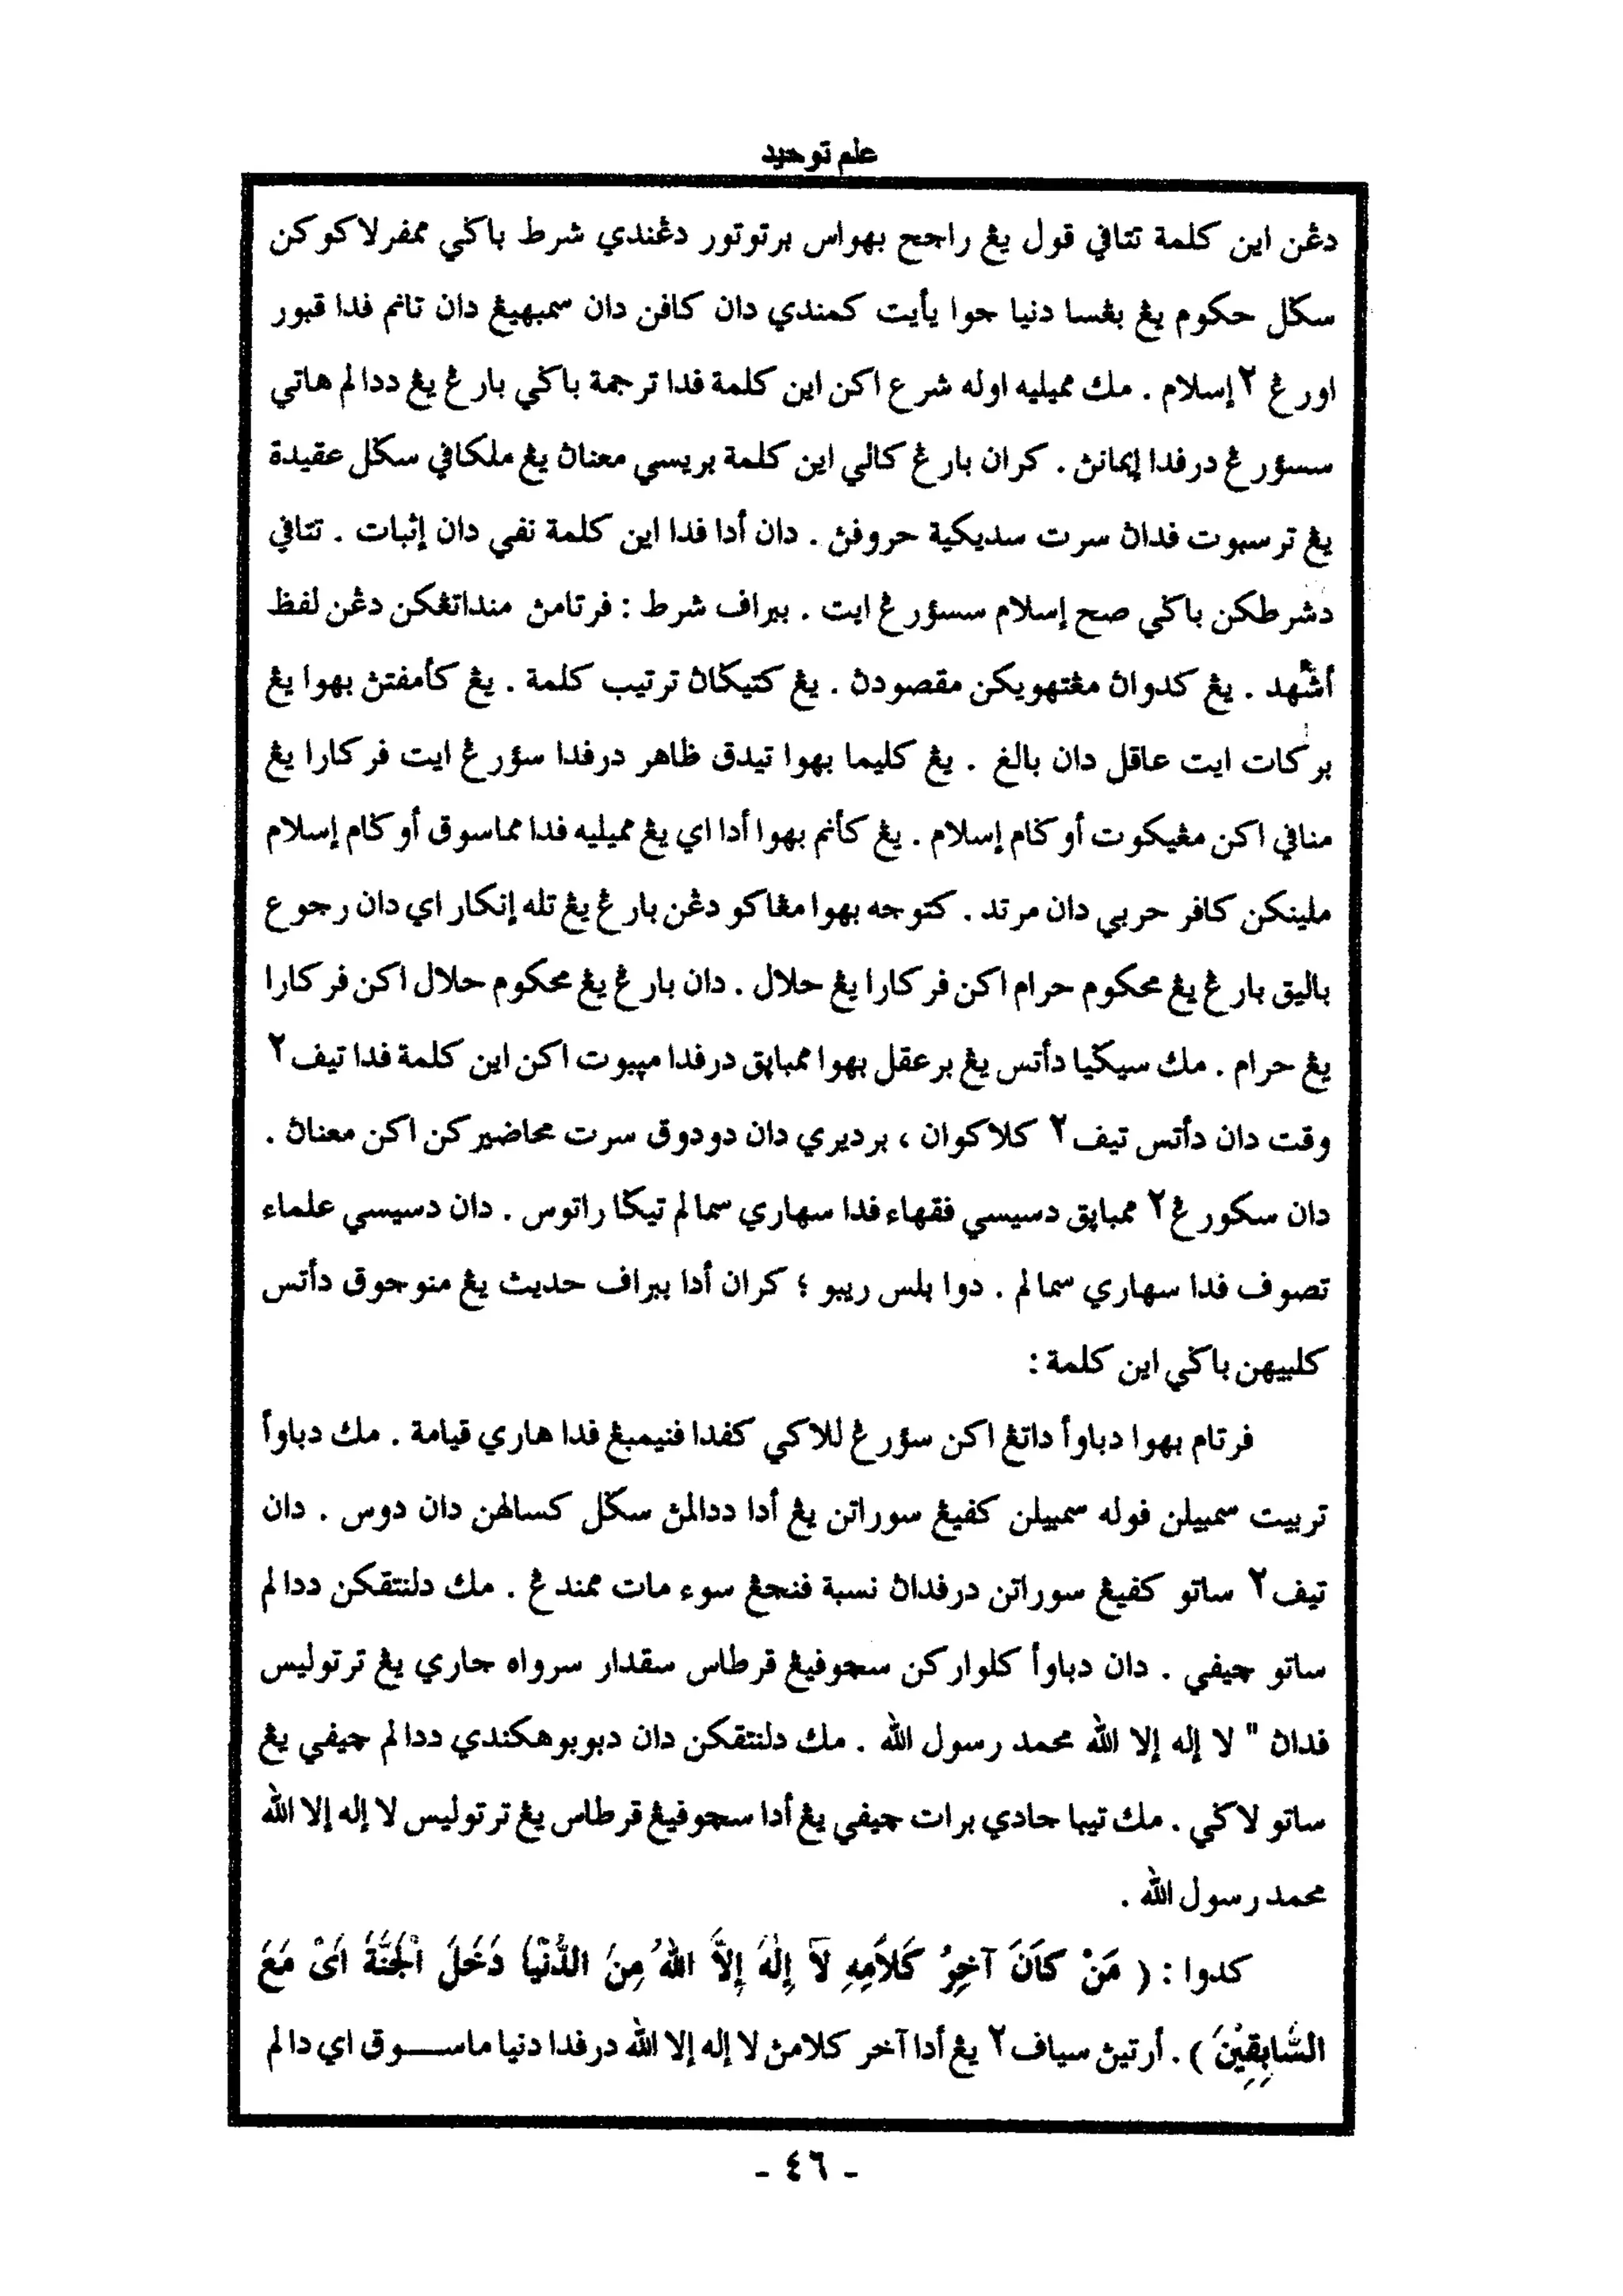 علم توحيد
دڠن اين كلمة تتافي قول يڠ راجح بهواس برتوتور دڠندي شرط باكي ممفرلاكوكن
سكل حكوم يڠ بڠسا دنيا جوا يأيت كمندي دان كافن دان سمبهيڠ دان تانم فدا قبور
اورڠ ٢ إسلام . مك مميليه اوله شرع اكن اين كلمة فدا ترجمة باكي بارڠ يڠ ددالم هاتي
سسؤرڠ درفدا إيمانڽ . كران بارڠ كالي اين كلمة بريسي معناڽ يڠ ملڪافي سكل عقيدة
يڠ ترسبوت فداڽ سرت سديكية حروفڽ . دان أدا فدا اين كلمة نفي دان إثبات . تتافي
دشرطكن باكي صح إسلام سسؤرڠ ايت . ببراف شرط : فرتامڽ منداتڠكن دڠن لفظ
أشهد . يڠ كدواڽ مڠتهويكن مقصودڽ . يڠ كتيكاڽ ترتيب كلمة . يڠ كأمفتڽ بهوا يڠ
بركات ايت عاقل دان بالغ . يڠ كليما بهوا تيدق ظاهر درفدا سؤرڠ ايت فركارا يڠ
منافي اكن مڠيكوت أوكام إسلام . يڠ كأنم بهوا أدا اي يڠ مميليه فدا مماسوق أوكام إسلام
ملينكن كافر حربي دان مرتد . كتوجه بهوا مڠاكو دڠن بارڠ يڠ تله إنكار اي دان رجوع
باليق بارڠ يڠ محكوم حرام اكن فركارا يڠ حلال . دان بارڠ يڠ محكوم حلال اكن فركارا
يڠ حرام . مك سيكيا دأتس يڠ برعقل بهوا ممباڽق درفدا مڽبوت اكن اين كلمة فدا تيف ٢
وقت دان دأتس تيف ٢ كلاكوان ، برديري دان دودوق سرت محاضيركن اكن معناڽ .
دان سكورڠ ٢ ممباڽق دسيسي فقهاء فدا سهاري سمالم تيكا راتوس . دان دسيسي علماء
تصوف فدا سهاري سمالم . دوا بلس ريبو ؛ كران أدا ببراف حديث يڠ منوجوق دأتس
كلبيهن باكي اين كلمة :
فرتام بهوا دباوأ داتڠ اكن سؤرڠ للاكي كفدا فنيمبڠ فدا هاري قيامة . مك دباوأ
تربيت سمبيلن فوله سمبيلن كفيڠ سوراتن يڠ أدا ددالمڽ سكل كسالهن دان دوس . دان
تيف ٢ ساتو كفيڠ سوراتن درفداڽ نسبة فنجڠ سوء مات ممندڠ . مك دلنتقكن ددالم
ساتو چيفي . دان دباوأ كلواركن سچوفيڠ قرطاس سقدار سرواه جاري يڠ ترتوليس
فداڽ " لا إله إلا الله محمد رسول الله . مك دلنتقكن دان دبوبوهكندي ددالم چيفي يڠ
ساتو لاكي . مك تيبا جادي برات چيفي يڠ أدا سچوفيڠ قرطاس يڠ ترتوليس لا إله إلا الله
محمد رسول الله .
كدوا : ( مَنْ كَانَ آخِرُ كَلاَمِهِ لاَ إِلَهَ إِلاَّ اللهُ مِنَ الدُّنْيَا دَخَلَ الْجَنَّةَ اَىْ مَعَ
السَّابِقِيْنَ ) . أرتيڽ سياف ٢ يڠ أدا آخر كلامڽ لا إله إلا الله درفدا دنيا ماسـوق اي دالم
- ٤٦ -